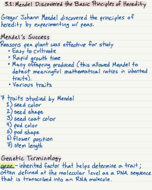 3.1: Mendel Discovered the Basic Principles of Heredity
Gregor Johann Mendel discovered the principles
of heredity by experimenting w/ peas.
Mendel's Success
Reasons pea plant was effective for study
• Easy to cultivate
• Rapid growth time
• Many offspring produced (this allowed Mendel to
detect meaningful mathematical ratios in inherited
traits).
• Various traits
7 traits studied by Mendel
1) seed color
2) seed shape
3) seed coat color
4) pod color
5) pod shape
6) flower position
7) stem length
Genetic Terminology
gene - inherited factor that helps determine a trait;
often defined at the molecular level as a DNA sequence
that is transcribed into an RNA molecule.